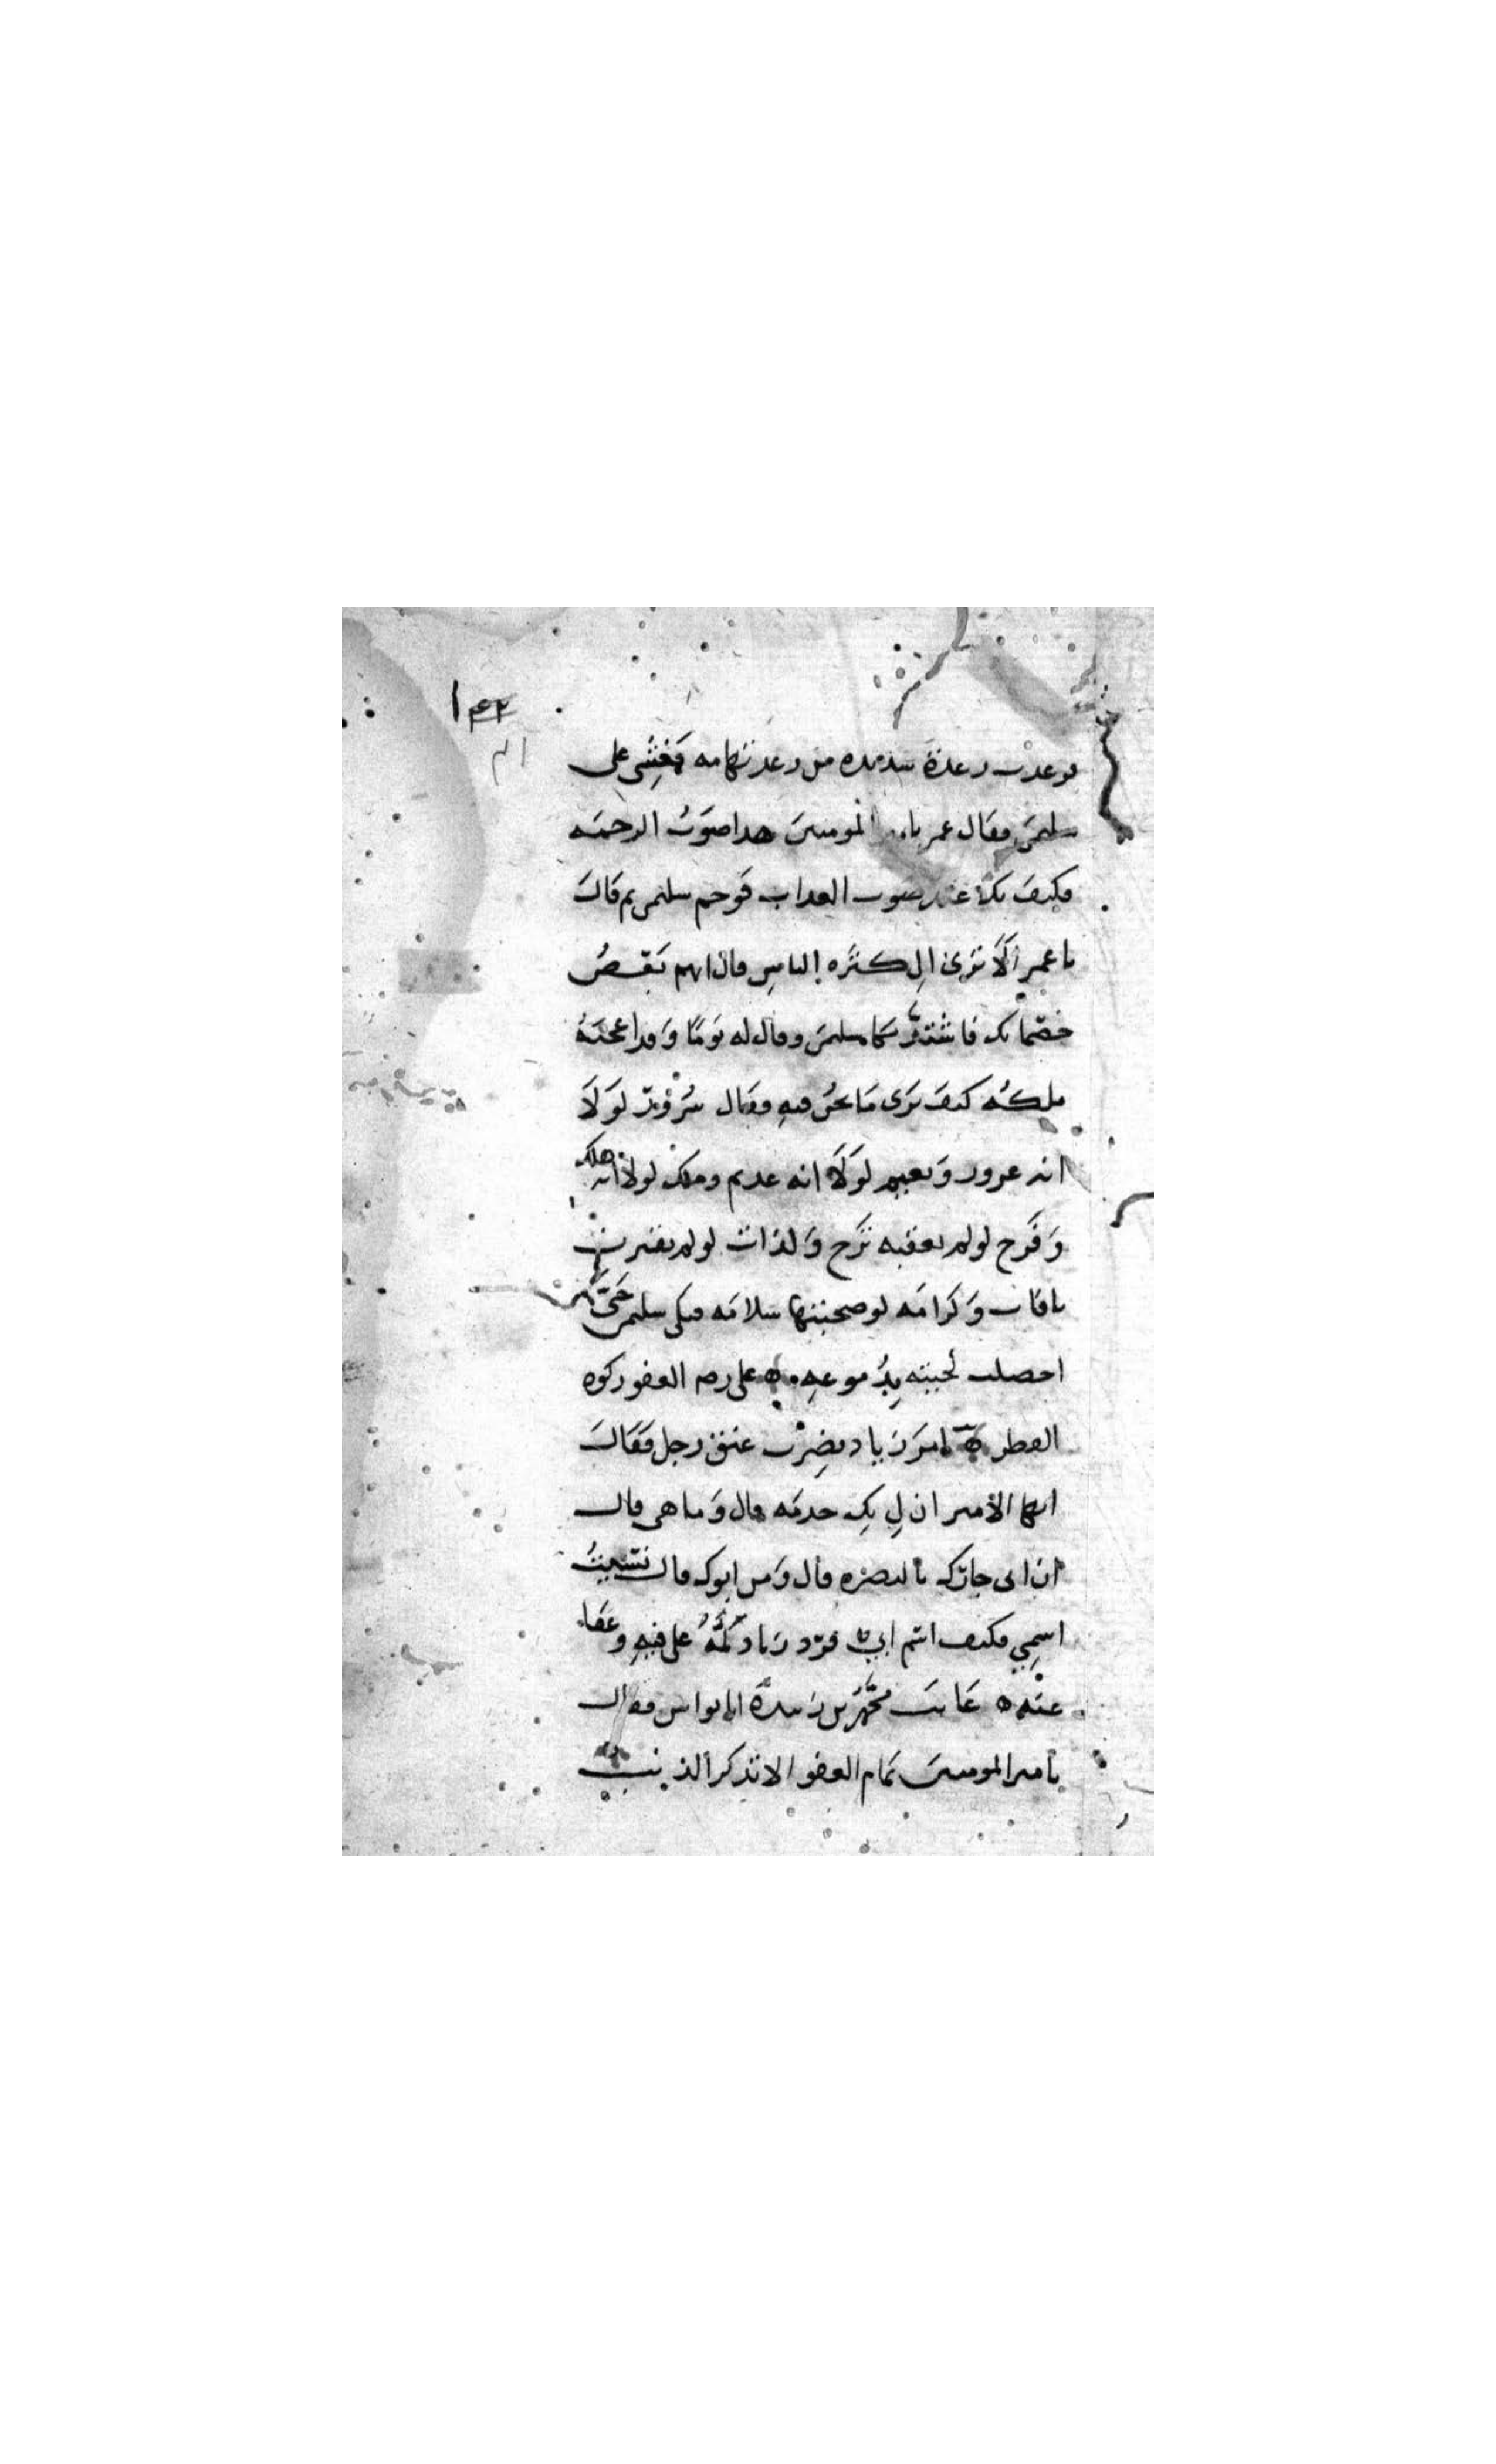 ١٤٢
فرعدت رعدة شديده من رعد تهامه فغشي على
سليمن فقال عمر يا المومنين هدا صوت الرحمه
فكيف بك عند صوت العداب فوجم سليمن ثم قال
يا عمر ألا ترى الى كثره الناس قال انهم بعض
خصمايك فاشتد سليمن وقال له يوما وقد اعجبه
ملكه كيف ترى ما نحن فيه فقال سرور لولا
انه غرور ونعيم لولا انه عديم وملك لولا انه هلك
وفرح لو لم يعقبه ترح ولذات لو لم تقترن
بافات وكرامه لو صحبتها سلامه فبكى سليمن حتى
اخضلت لحيته بدموعه ٥ على رضه العفو زكوه
الظفر ٥ امر زياد بضرب عنق رجل فقال
ايها الأمير ان لي بك حرمه قال وما هي قال
ان ابى جارك بالبصره قال ومن ابوك قال نسيت
اسمي فكيف اسم ابي فرد زياد كمه على فيه وعفا
عنه ٥ عاتب محمد بن زبيدة ابا نواس فقال
يا مير المومنين تمام العفو الا تذكر الذنب